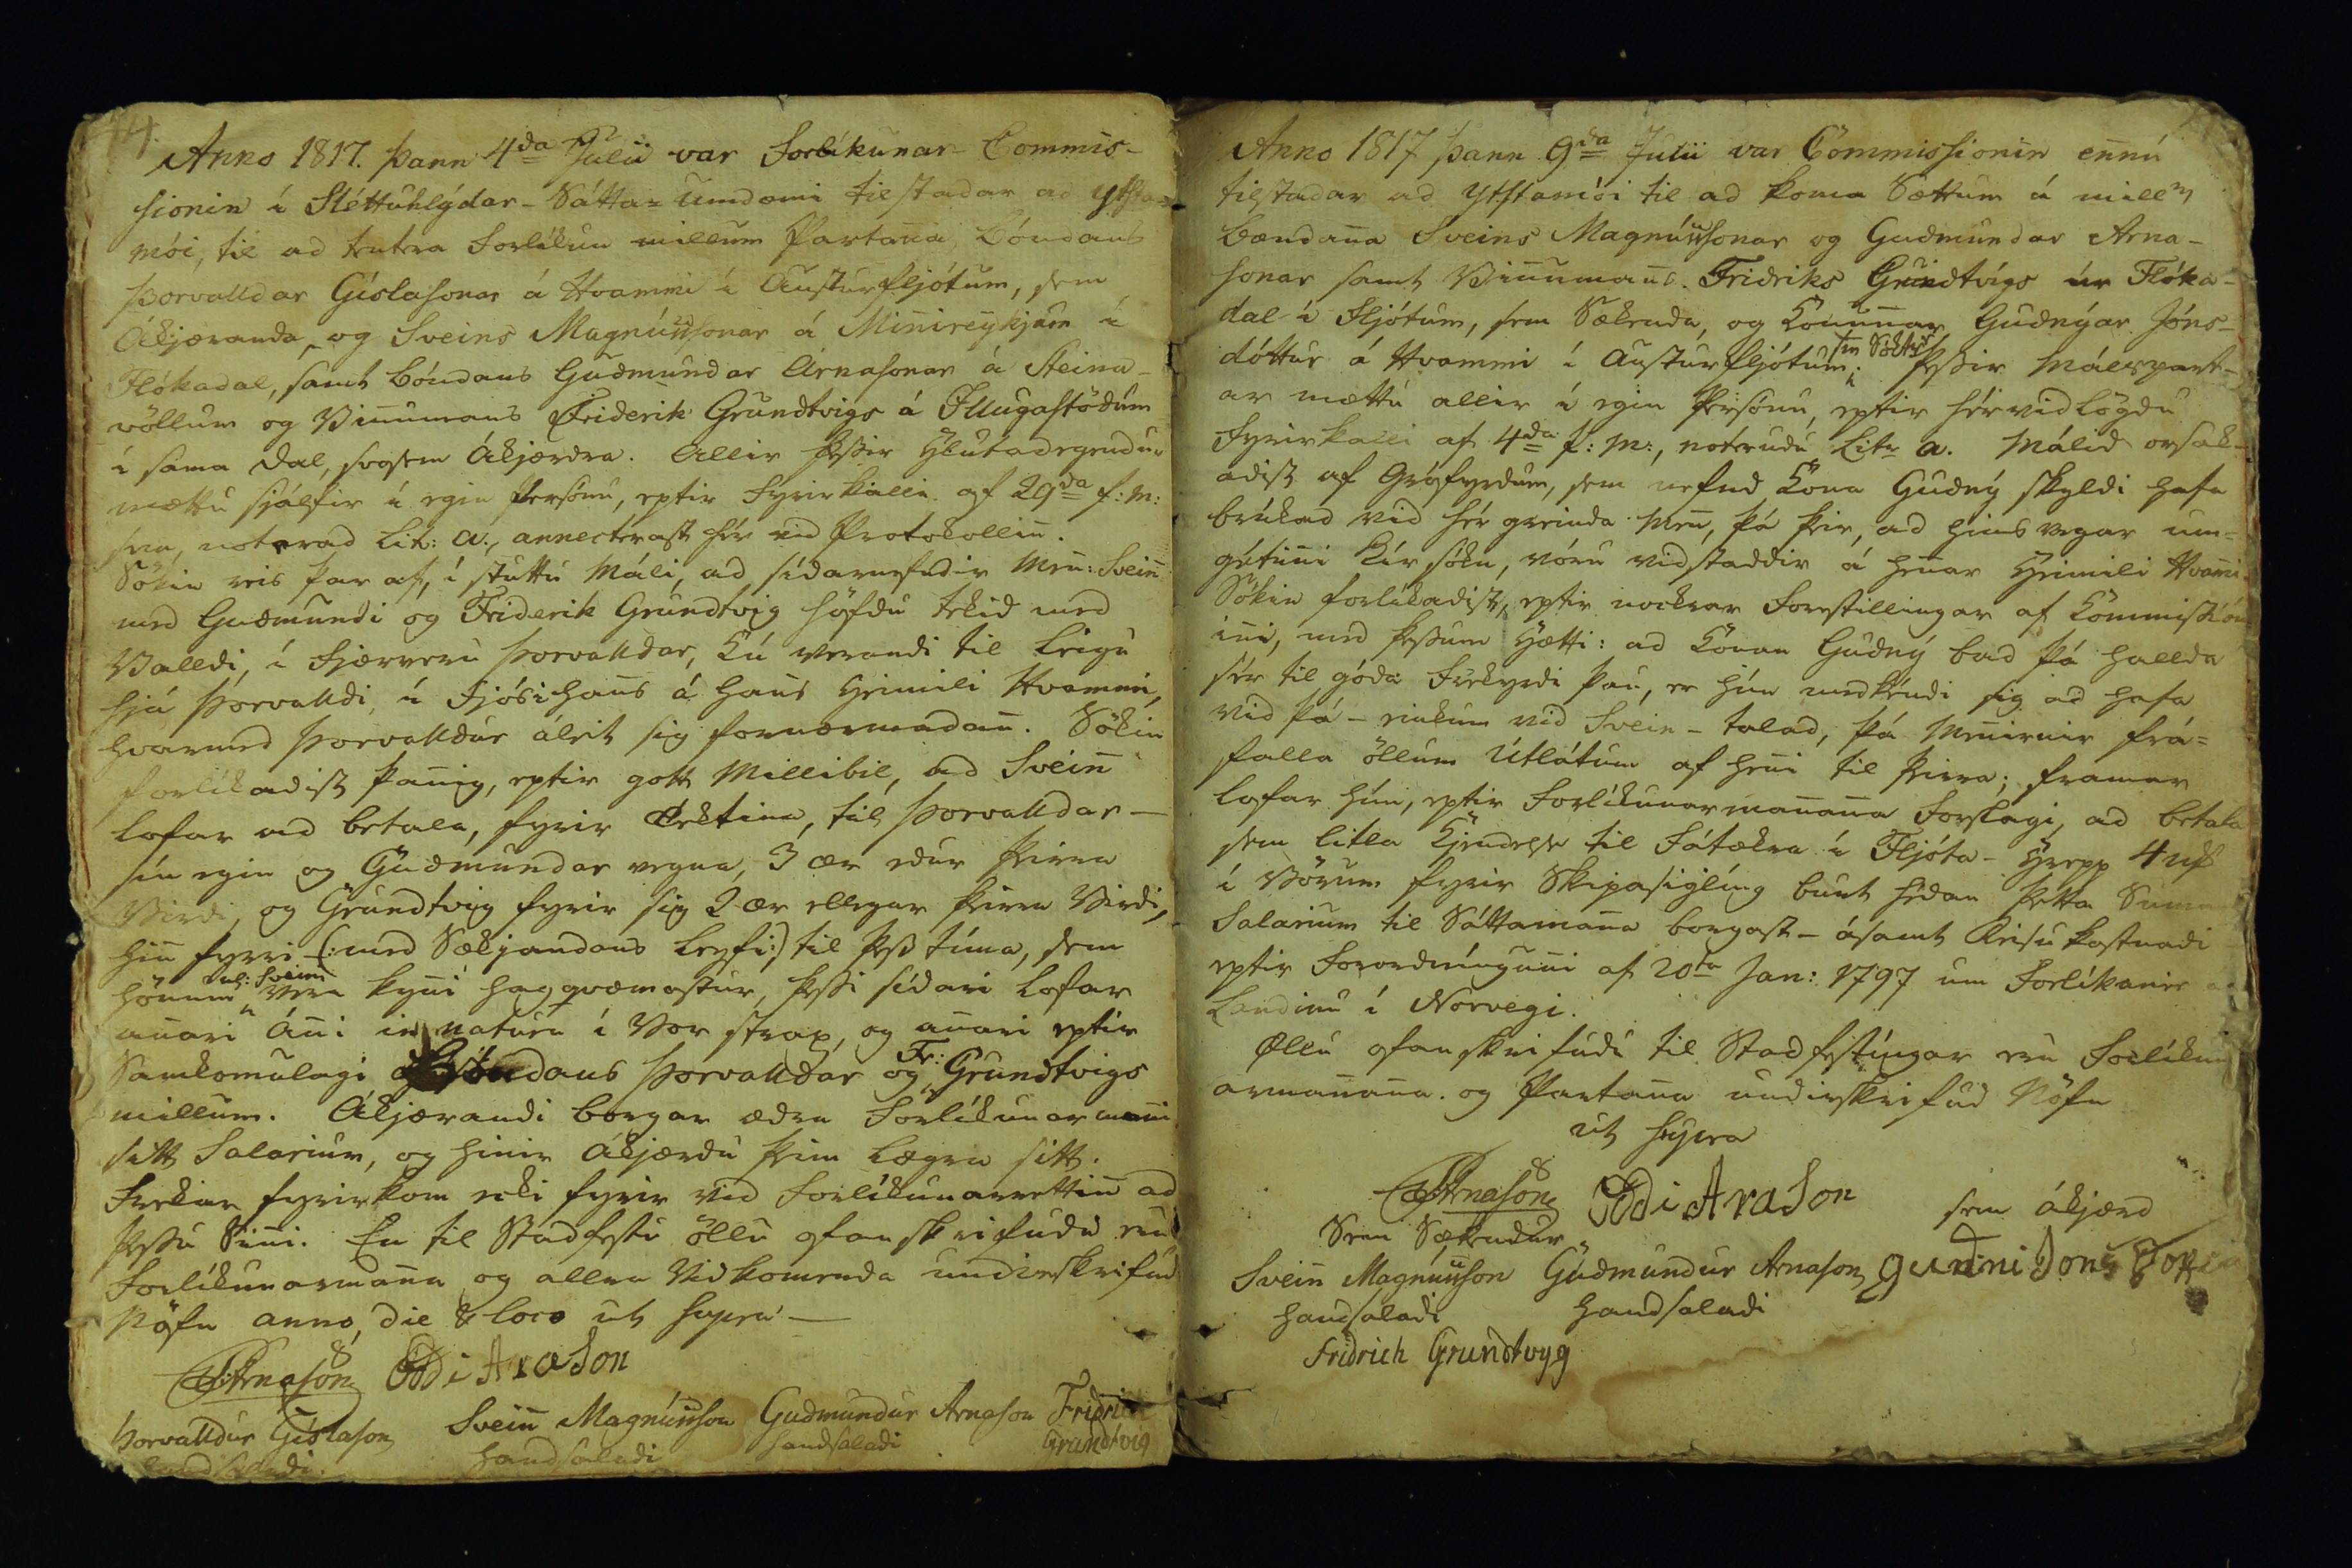 44.
Anno 1817. þann 4da Julii var Forlíkunar-Commis-
sionin í Sléttuhlýdar-Sátta-umdæmi tilstadar ad Ytsta-
mói, til ad tentra Forlíkun millum Partana, bóndans
Þorvalldar Gíslasonar á Hvammi í Austurfljótum, sem
Ákjæranda, og Sveins Magnússonar á Minnireykjum í
Flókadal, samt bóndans Gudmundar Árnasonar á Steina-
völlum og Vinnumans Friderik Grundtvigs á Illugastödum
í sama dal, svosem Ákjærdra. Allir þessir hlutadeigendur
mættu sjálfir í egin Persónu, eptir Fyrirkalli af 29da f: m:
sem, noterad Lit: a., annecterast hér vid Protokollinn.
Sökin reis þar af, í stuttu máli, ad sídarnefndir menn: Sveinn
med Gudmundi og Friderik Grundtvig höfdu tekid med
Valldi, í Fjærveru Þorvalldar, Kú verandi til leigu
hjá Þorvalldi, í Fjósi hans á hans heimili Hvammi,
hvarmed Þorvalldur áleit sig fornærmadann. Sökin
forlíkadist þannig, eptir gott Millibil, ad Sveinn
lofar ad betala, fyrir Öktina, til Þorvalldar —
sín egin og Gudmundar vegna, 3 ær edur þeirra
Virdi, og Grundtvig fyrir sig 2 ær ellegar þeirra Virdi,
hinn fyrri (: med Sækjandans leyfi :) til þess tíma, sem
hönum nl: Sveini vera kynni hagqvæmastur, þessi sídari lofar
annari Ánni in natura í Vor strax, og annari eptir
Samkomulagi Bóndans Þorvalldar og Fr: Grundtvigs
millum. Ákjærandi borgar ædra Forlíkunarmanni
sitt Salarium, og hinir Ákjærdu þeim lægra sitt.
Frekar fyrirkom ecki fyrir vid Forlíkunarrettinn ad
þessu Sinni. En til Stadfestu öllu ofanskrifudu eru
Forlíkunarmanna og allra Vidkomenda undirskrifud
Nöfn anno, die & loco ut supra —
Arnason Oddi Arason
Þorvalldur Gíslason Sveinn Magnússon Gudmundur Arnason Fridrich
handsaladi handsaladi handsaladi Grundtvig
Anno 1817 þann 9da Julii var Commissionin ennú
tilstadar ad Ytstamói til ad koma Sættum á millum
bændanna Sveins Magnússonar og Gudmundar Arna-
sonar samt Vinnumans Fridriks Grundtvigs úr Flóka-
dal í Fljótum, sem Sækenda, og Konunnar Gudnýar Jóns-
dóttur á Hvammi í Austurfljótum, sem Söktrar. Þessir málspart-
ar mættu allir í egin Persónu, eptir hérvidlögdu
Fyrirkalli af 4da f: m:, noterudu Litr a. Málid orsak-
adist af Grófyrdum, sem nefnd Kona Gudný skyldi hafa
brúkad vid hér greinda menn, þá þeir, ad hins vegar um-
gétinni Kúrsókn, vóru vidstaddir á hennar heimili Hvammi.
Sökin forlíkadist, eptir nockrar Forestillingar af Kommission-
inni, med þessum hætti: ad Konan Gudný bad þá hallda
sér til góda Frekyrdi þau, er hún medkéndi sig ad hafa
vid þá — einkum vid Svein — talad, þá Mennirnir frá-
falla öllum Útlátum af henni til þeirra; framar
lofar hún, eptir Forlíkunarmannanna Forslagi, ad betala
sem litla Kjendelse til Fátækra í Fljóta-Hrepp 4 mk
í Vörum fyrir Skipasigling burt hédan þetta Sumar
Salarium til Sáttamanna borgast — ásamt Reisukostnadi
eptir Forordníngunni af 20ta Jan: 1797 um Forlíkanir á
Landinu í Norvegi.
Öllu ofanskrifudu til Stadfestíngar eru Forlíkun-
armannanna og Partanna undirskrifud Nöfn
ut supra
Arnason Oddi Arason
Sem Sækendur sem ákjærd
Sveinn Magnússon Gudmundur Arnason gudni Jons Dotter
handsaladi handsaladi
Fridrich Grundtvyg